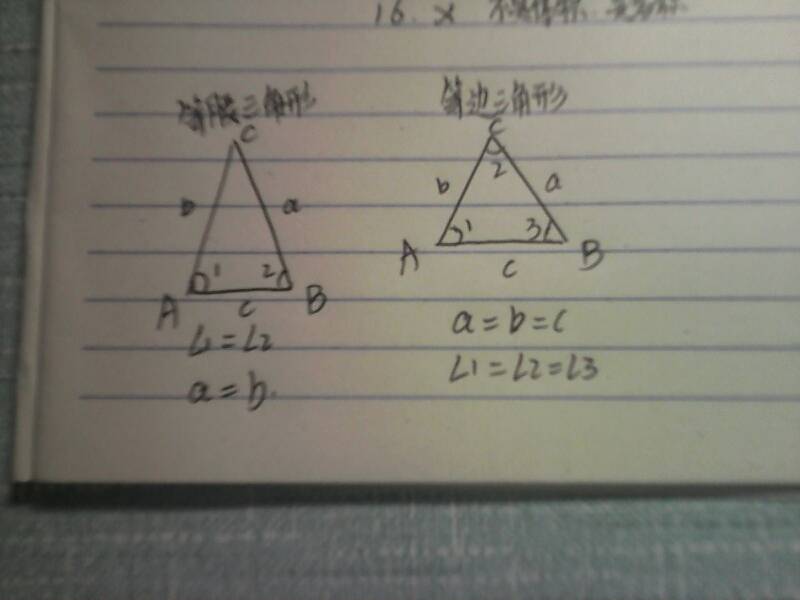 16. ×
等腰三角形
C
b a
1 2
A c B
∠1=∠2
a=b.
等边三角形
C
2
b a
1 3
A c B
a=b=c
∠1=∠2=∠3